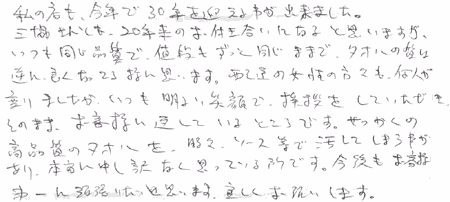 私の店も、今年で30年を迎える事が出来ました。
三協さんとも、20年来のお付き合いになると思いますが、
いつも同じ品質で、値段もずっと同じままで、タオルの質は
逆に良くなってる様に思います。配達の女性の方々も、何人か
変りましたが、いつも明るい笑顔で、挨拶をしていただき、
そのまま、お客様に返しているところです。せっかくの
高品質のタオルを、時々、ソース等で汚してしまう事が
あり、本当に申し訳なく思っている所です。今後もお客様
第一に頑張りたいと思います。宜しくお願いします。